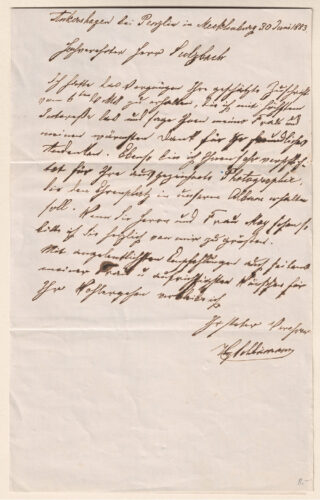 Ankershagen bei Penzlin in Mecklenburg 30 Juni 1883
Hochverehrter Herr Sulzbach
Ich hatte das Vergnügen Ihr geschätzte Zuschrift
vom 6 zu erhalten, die ich mit höchstem
Interesse las und sage Ihnen meiner Frau und
meinen wärmsten Dank für Ihr freundliches
Andenken. Ebenso bin ich Ihnen sehr verpflich-
tet für Ihre ausgezeichnete Photographie,
die den Ehrenplatz in unserm Album erhalten
soll. Wenn Sie Herrn und Frau May sehen so
bitte ich Sie herzlich von mir zu grüßen.
Mit angelentlichsten Empfehlungen auf seiten
meiner Frau u aufrichtigsten Wünschen für
Ihr Wohlergehen verbleibe ich
Ihr steter Verehrer
Hy Schliemann
8.-